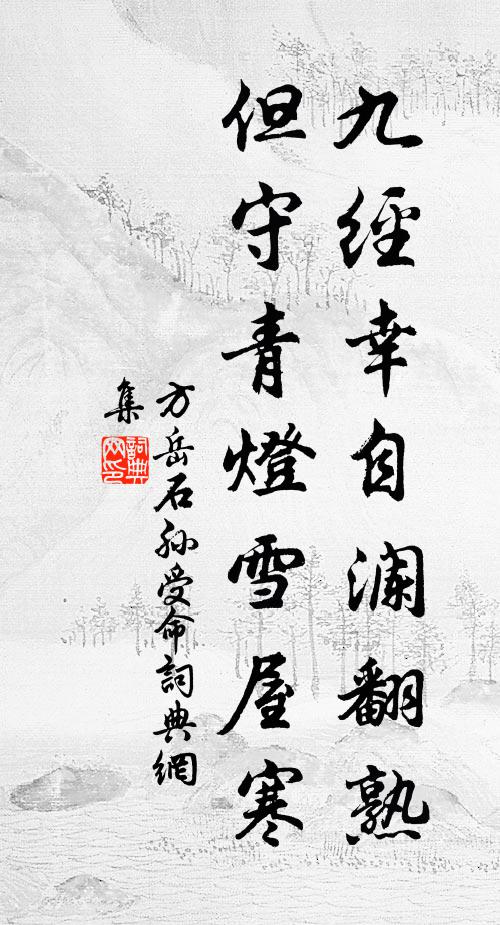 九經幸自瀾翻熟
但守青燈雪屋寒
方岳石孙受命詞典網
集
詞典網印